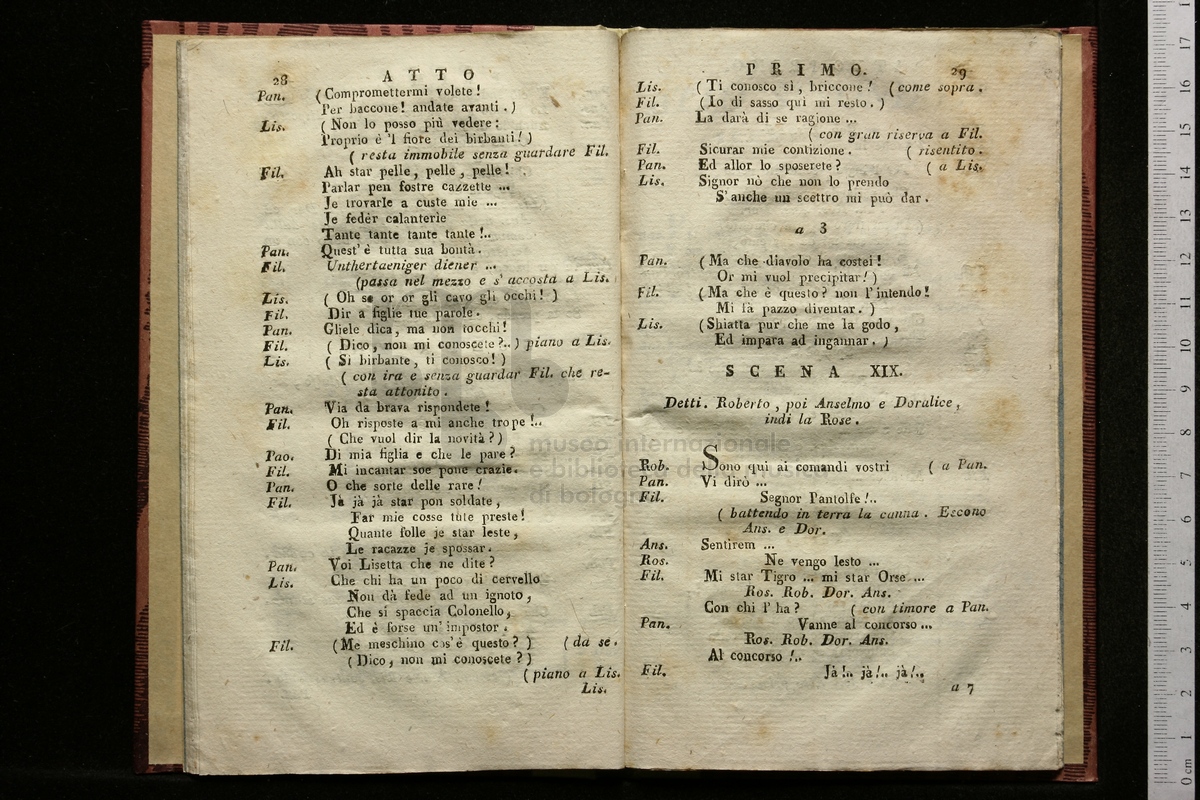 28 ATTO
Pan. (Compromettermi volete!
Per baccone! andate avanti.)
Lis. (Non lo posso più vedere:
Proprio è 'l fiore dei birbanti!)
(resta immobile senza guardare Fil.
Fil. Ah star pelle, pelle, pelle!
Parlar pen fostre cazzette ...
Je trovarle a custe mie ...
Je fedér calanterie
Tante tante tante tante!..
Pan. Quest' è tutta sua bontà.
Fil. Unthertaeniger diener ...
(passa nel mezzo e s' accosta a Lis.
Lis. (Oh se or or gli cavo gli occhi!)
Fil. Dir a figlie tue parole.
Pan. Gliele dica, ma non tocchi!
Fil. (Dico, non mi conoscete?..) piano a Lis.
Lis. (Sì birbante, ti conosco!)
(con ira e senza guardar Fil. che re-
sta attonito.
Pan. Via da brava rispondete!
Fil. Oh risposte a mi anche trope!..
(Che vuol dir la novità?)
Pao. Di mia figlia e che le pare?
Fil. Mi incantar soe pone crazie.
Pan. O che sorte delle rare!
Fil. Jà jà jà star pon soldate,
Far mie cosse tute preste!
Quante folle je star leste,
Le racazze je spossar.
Pan. Voi Lisetta che ne dite?
Lis. Che chi ha un poco di cervello
Non dà fede ad un ignoto,
Che si spaccia Colonello,
Ed è forse un' impostor.
Fil. (Me meschino cos'è questo?) (da se.
(Dico, non mi conoscete?)
(piano a Lis.
Lis.
PRIMO. 29
Lis. (Ti conosco sì, briccone! (come sopra.
Fil. (Io di sasso qui mi resto.)
Pan. La darà di se ragione ...
(con gran riserva a Fil.
Fil. Sicurar mie contizione. (risentito.
Pan. Ed allor lo sposerete? (a Lis.
Lis. Signor nò che non lo prendo
S' anche un scettro mi può dar.
a 3
Pan. (Ma che diavolo ha costei!
Or mi vuol precipitar!)
Fil. (Ma che è questo? non l' intendo!
Mi fà pazzo diventar.)
Lis. (Shiatta pur che me la godo,
Ed impara ad ingannar.)
SCENA XIX.
Detti. Roberto, poi Anselmo e Doralice,
indi la Rose.
Rob. Sono qui ai comandi vostri (a Pan.
Pan. Vi dirò ...
Fil. Segnor Pantolfe!..
(battendo in terra la canna. Escono
Ans. e Dor.
Ans. Sentirem ...
Ros. Ne vengo lesto ...
Fil. Mi star Tigro ... mi star Orse ...
Ros. Rob. Dor. Ans.
Con chi l' ha? (con timore a Pan.
Pan. Vanne al concorso ...
Ros. Rob. Dor. Ans.
Al concorso!..
Fil. Jà!.. jà!.. jà!..
a 7
museo internazionale
e biblioteca della musica
di bologna
0 cm 1 2 3 4 5 6 7 8 9 10 11 12 13 14 15 16 17